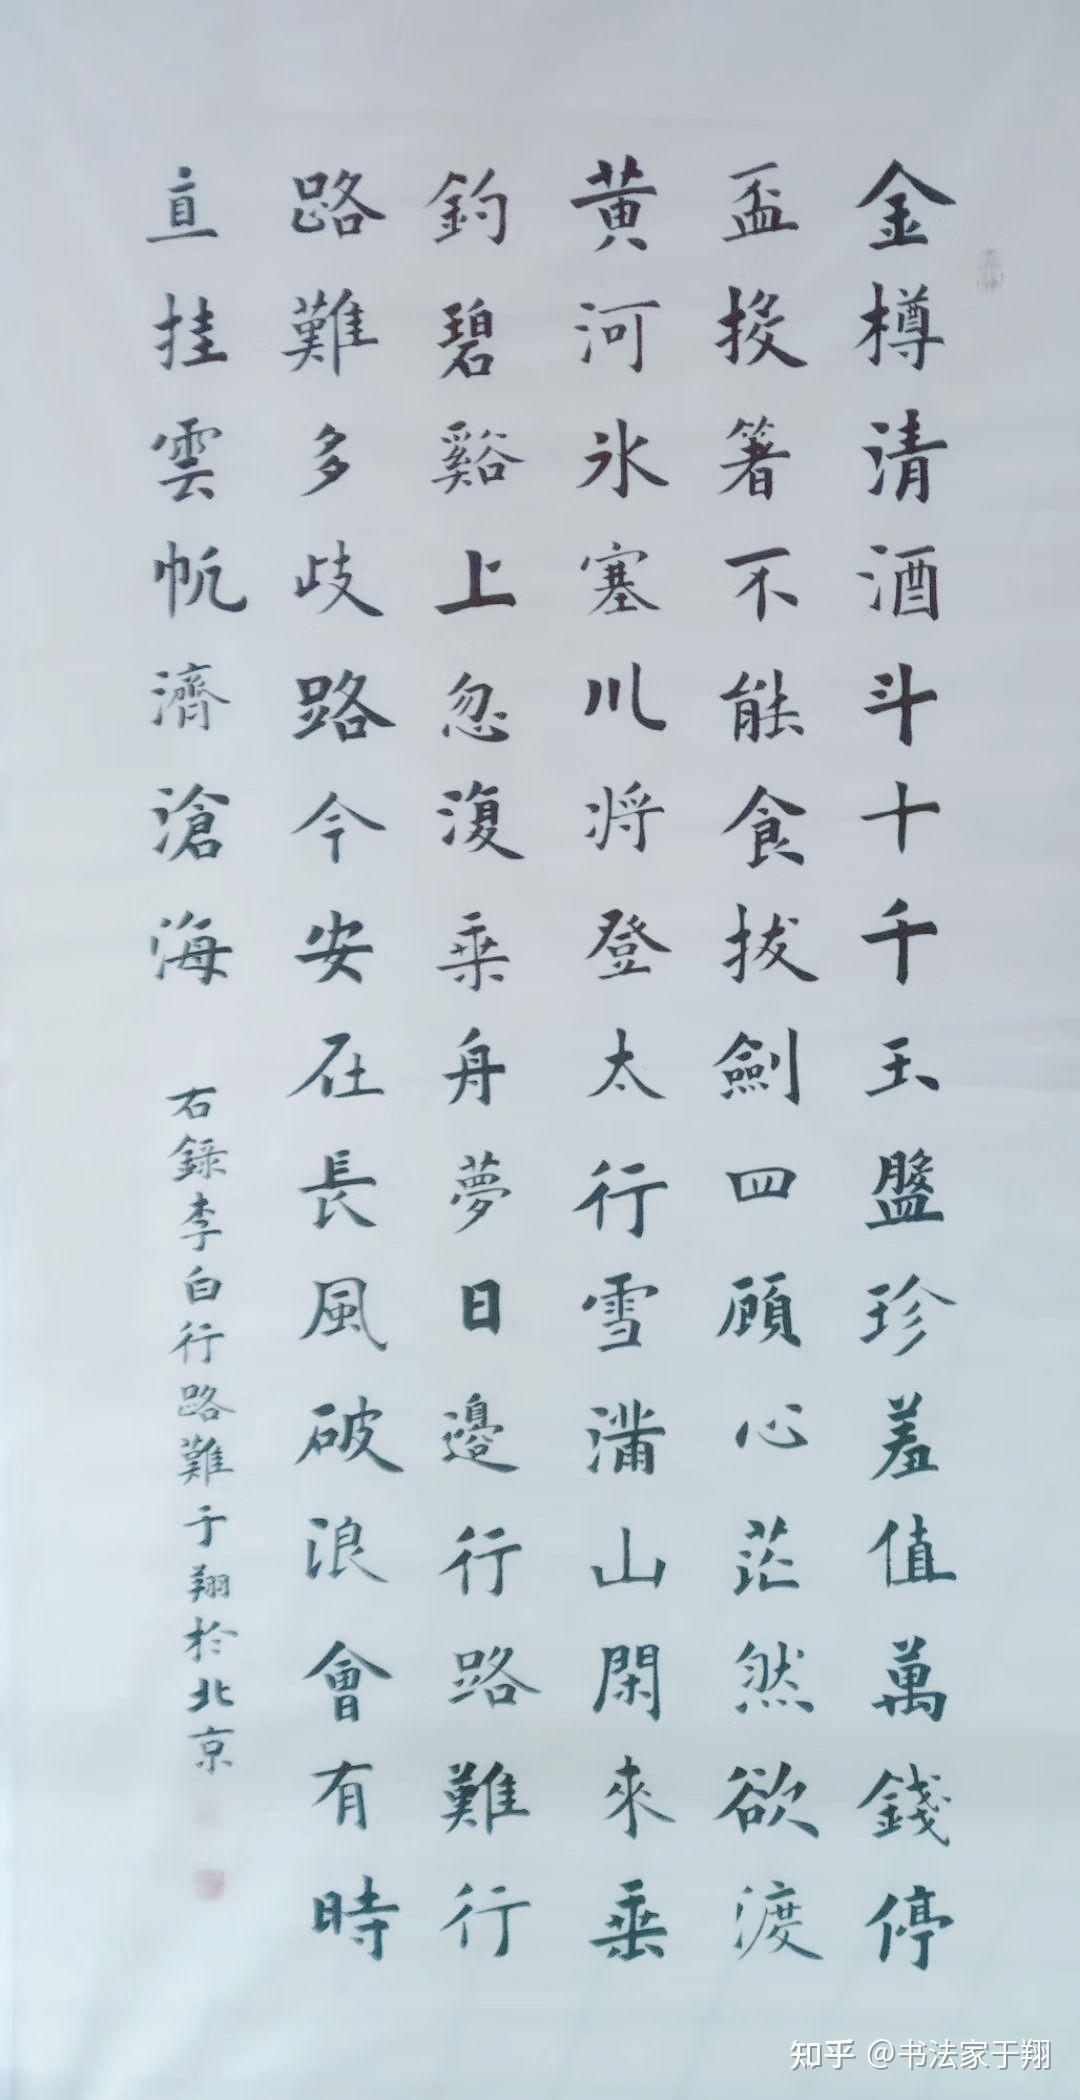 金樽清酒斗十千玉盤珍羞值萬錢停
盃投箸不能食拔劍四顧心茫然欲渡
黃河氷塞川將登太行雪滿山閑來垂
釣碧谿上忽復乘舟夢日邊行路難行
路難多歧路今安在長風破浪會有時
直挂雲帆濟滄海
右錄李白行路難于翔於北京
知乎 @书法家于翔